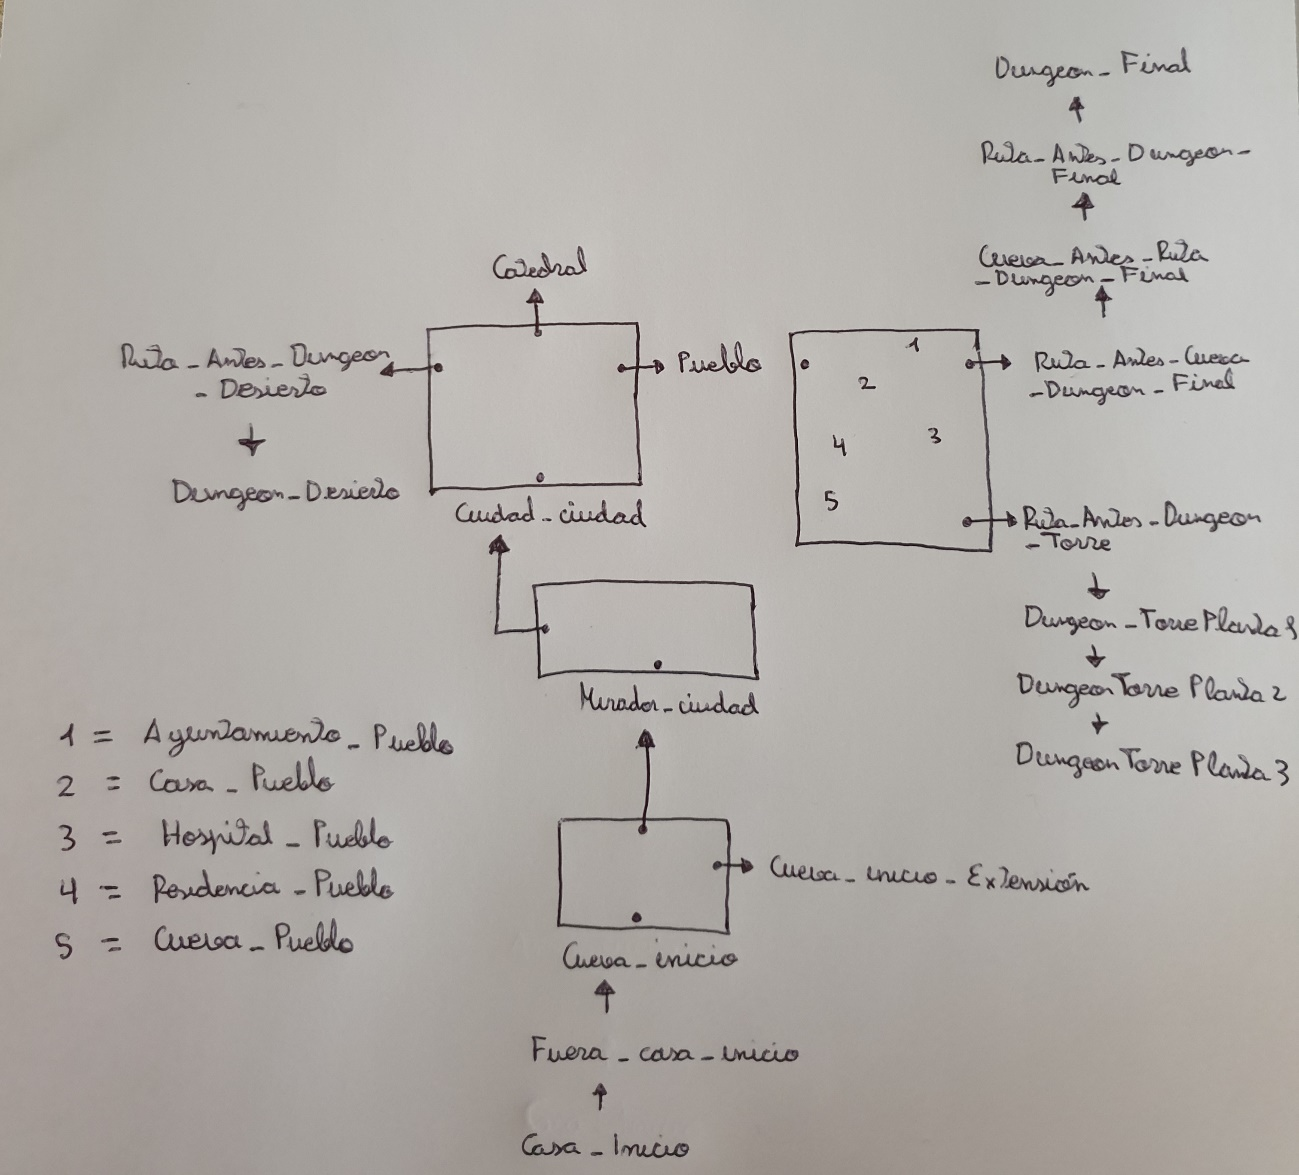 Dungeon_Final
Ruta_Antes_Dungeon_
Final
Cueva_Antes_Ruta
_Dungeon_Final
Catedral
Ruta_Antes_Dungeon
_Desierto
Pueblo
1
2
3
4
5
Ruta_Antes_Cueva
_Dungeon_Final
Dungeon_Desierto
Ciudad_ciudad
Ruta_Antes_Dungeon
_Torre
Dungeon_TorrePlanta1
DungeonTorre Planta 2
DungeonTorre Planta 3
Mirador_ciudad
1 = Ayuntamiento_Pueblo
2 = Casa_Pueblo
3 = Hospital_Pueblo
4 = Residencia_Pueblo
5 = Cueva_Pueblo
Cueva_inicio_Extensión
Cueva_inicio
Fuera_casa_inicio
Casa_Inicio